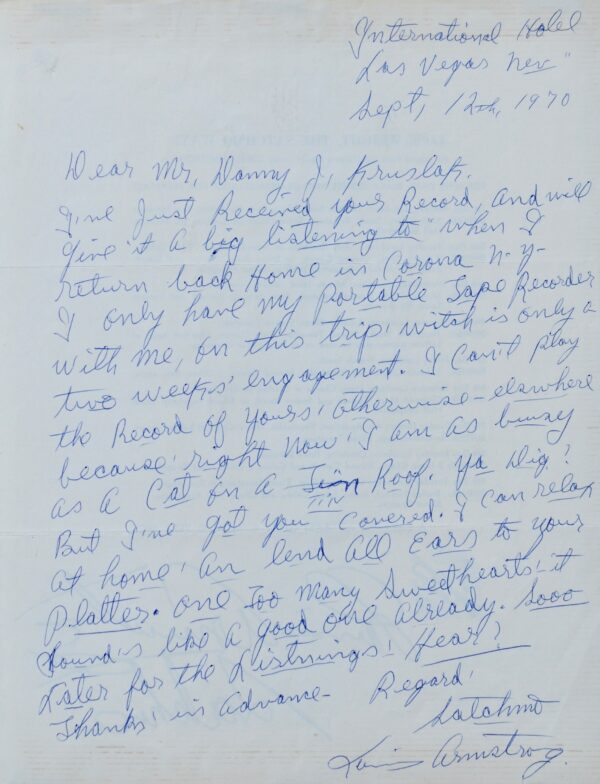 International Hotel
Las Vegas Nev"
Sept, 12th, 1970
Dear Mr, Danny J, Kruslak.
I,ve Just Received your Record, and will
give 'it A big listening to" when I
return back Home in Corona N-Y-
I only have my Portable Tape Recorder
with me, on this trip, witch is only a
two weeks' engagement. I Can't play
the Record of yours, otherwise - elsewhere
because, right Now, I am as buszy
as A Cat on A Tin Roof. Ya Dig?
TIN
But I've got you Covered. I can relax
at home, An lend All Ears to your
Platter. One Too Many Sweethearts, it
Sound's like A good one Already. Sooo
Later for the Listnings, Hear?
Thanks' in Advance - Regard,
Satchmo
Louis Armstrong.